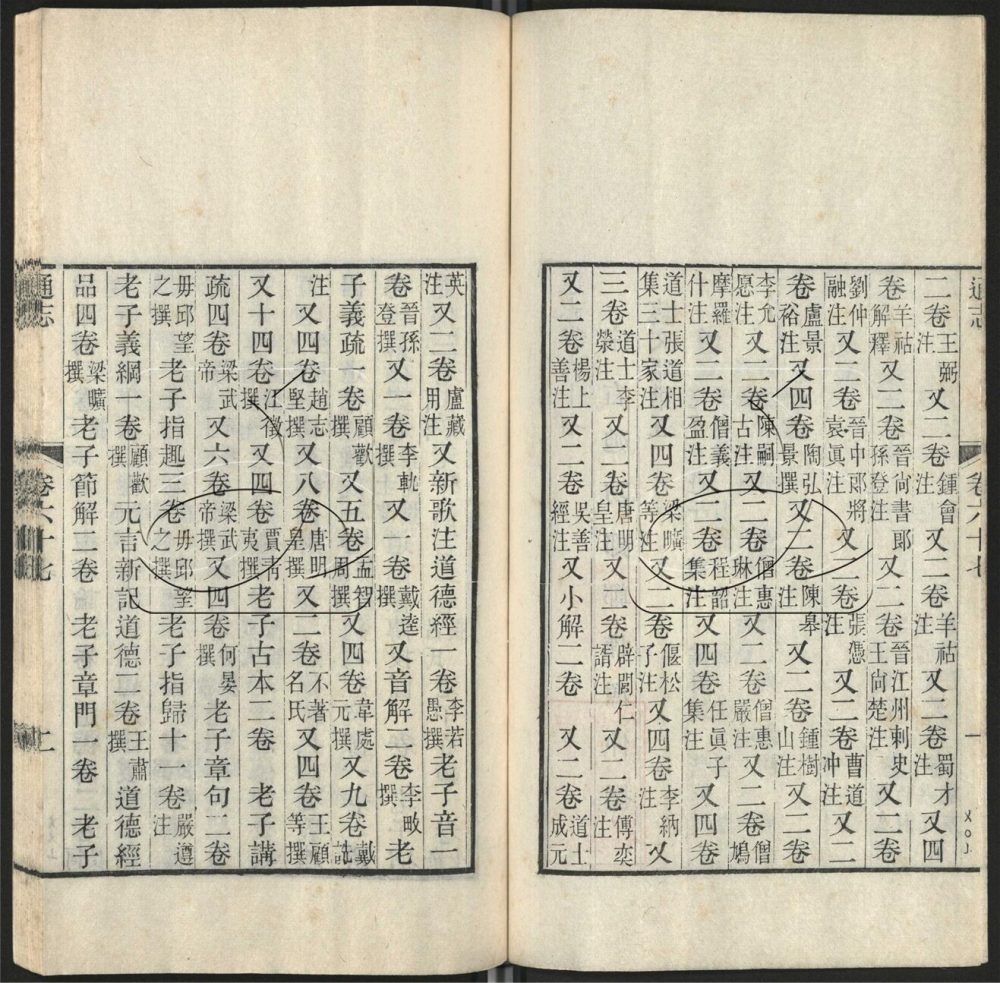 通志 卷六十七 一
二卷王弼注又二卷鍾會注又二卷羊祜注又二卷蜀才注又四
卷羊祜解釋又二卷晉尙書郎孫登注又二卷晉江州刺史王尙楚注又二卷
劉仲融注又二卷晉中郎將袁眞注又二卷張憑注又二卷曹道冲注又二
卷盧景裕注又四卷陶弘景撰又二卷陳皋注又二卷鍾樹山注又二卷
李允愿注又二卷陳嗣古注又二卷僧惠琳注又二卷僧惠嚴注又二卷僧鳩
摩羅什注又二卷僧義盈注又二卷程韶集注又四卷任眞子集注又四卷
道士張道相集三十家注又四卷梁曠等注又二卷偃松子注又四卷李納注又
三卷道士李榮注又二卷唐明皇注又二卷辟閭仁諝注又二卷傅奕注
又二卷楊上善注又二卷吳善經注又小解二卷 又二卷道士成元
英注又二卷盧藏用注又新歌注道德經一卷李若愚撰老子音一
卷晉孫登撰又一卷李軌撰又一卷戴逵撰又音解二卷李畋撰老
子義疏一卷顧歡撰又五卷孟智周撰又四卷韋處元撰又九卷戴詵
注又四卷趙志堅撰又八卷唐明皇撰又二卷不著名氏又四卷王顧等撰
又十四卷江徵撰又四卷賈靑夷撰老子古本二卷 老子講
疏四卷梁武帝又六卷梁武帝撰又四卷何晏撰老子章句二卷
毋邱望之撰老子指趣三卷毋邱望之撰老子指歸十一卷嚴遵注
老子義綱一卷顧歡撰元言新記道德二卷王肅撰道德經
品四卷梁曠撰老子節解二卷 老子章門一卷 老子
通志 卷六十七